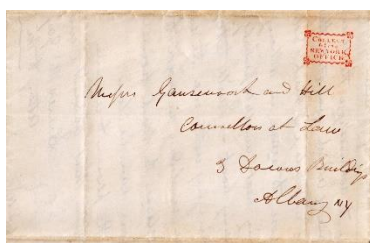 COLLECT
NEW YORK
OFFICE
Messrs Gansevoort and Hill
Counsellors at Law
3 Douws Buildings
Albany NY